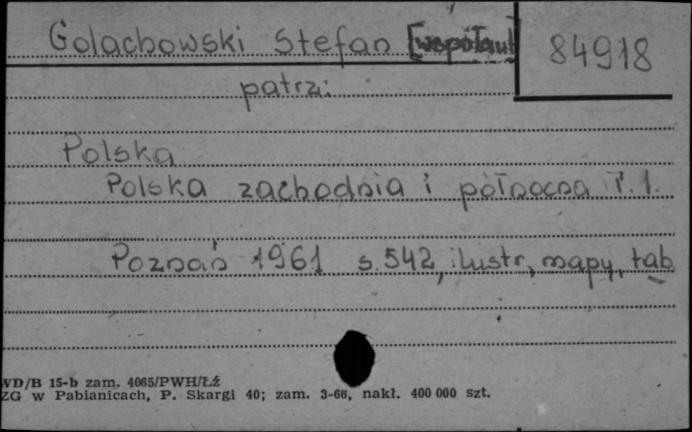 Golachowski Stefan [współaut]
84918
patrz:
Polska
Polska zachodnia i północna T. 1.
Poznań 1961 s. 542, ilustr., mapy, tab
WD/B 15-b zam. 4065/PWH/Łź
ZG w Pabianicach, P. Skargi 40; zam. 3-66, nakł. 400 000 szt.